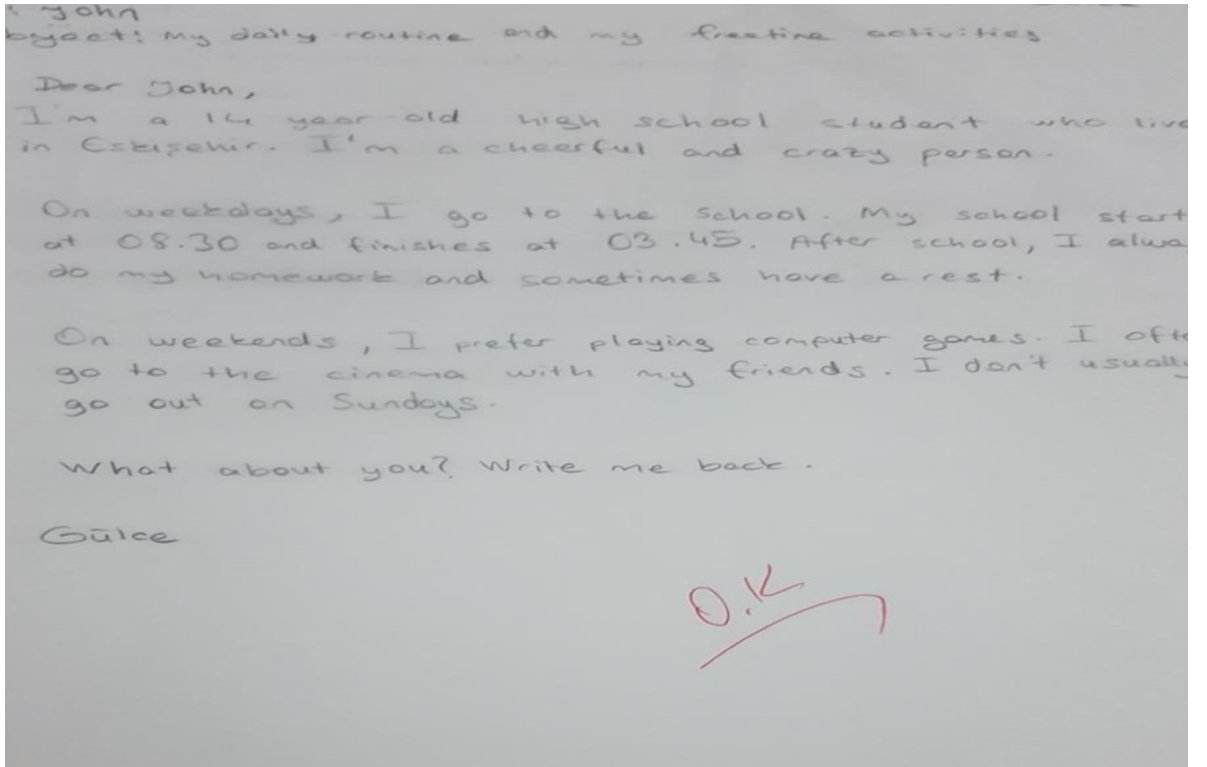 : John
bject: My daily routine and my freetime activities
Dear John,
I'm a 14 year old high school student who live
in Eskişehir. I'm a cheerful and crazy person.
On weekdays, I go to the school. My school start
at 08.30 and finishes at 03.45. After school, I alwa
do my homework and sometimes have a rest.
On weekends, I prefer playing computer games. I ofte
go to the cinema with my friends. I don't usually
go out on Sundays.
What about you? Write me back.
Gülce
O.K